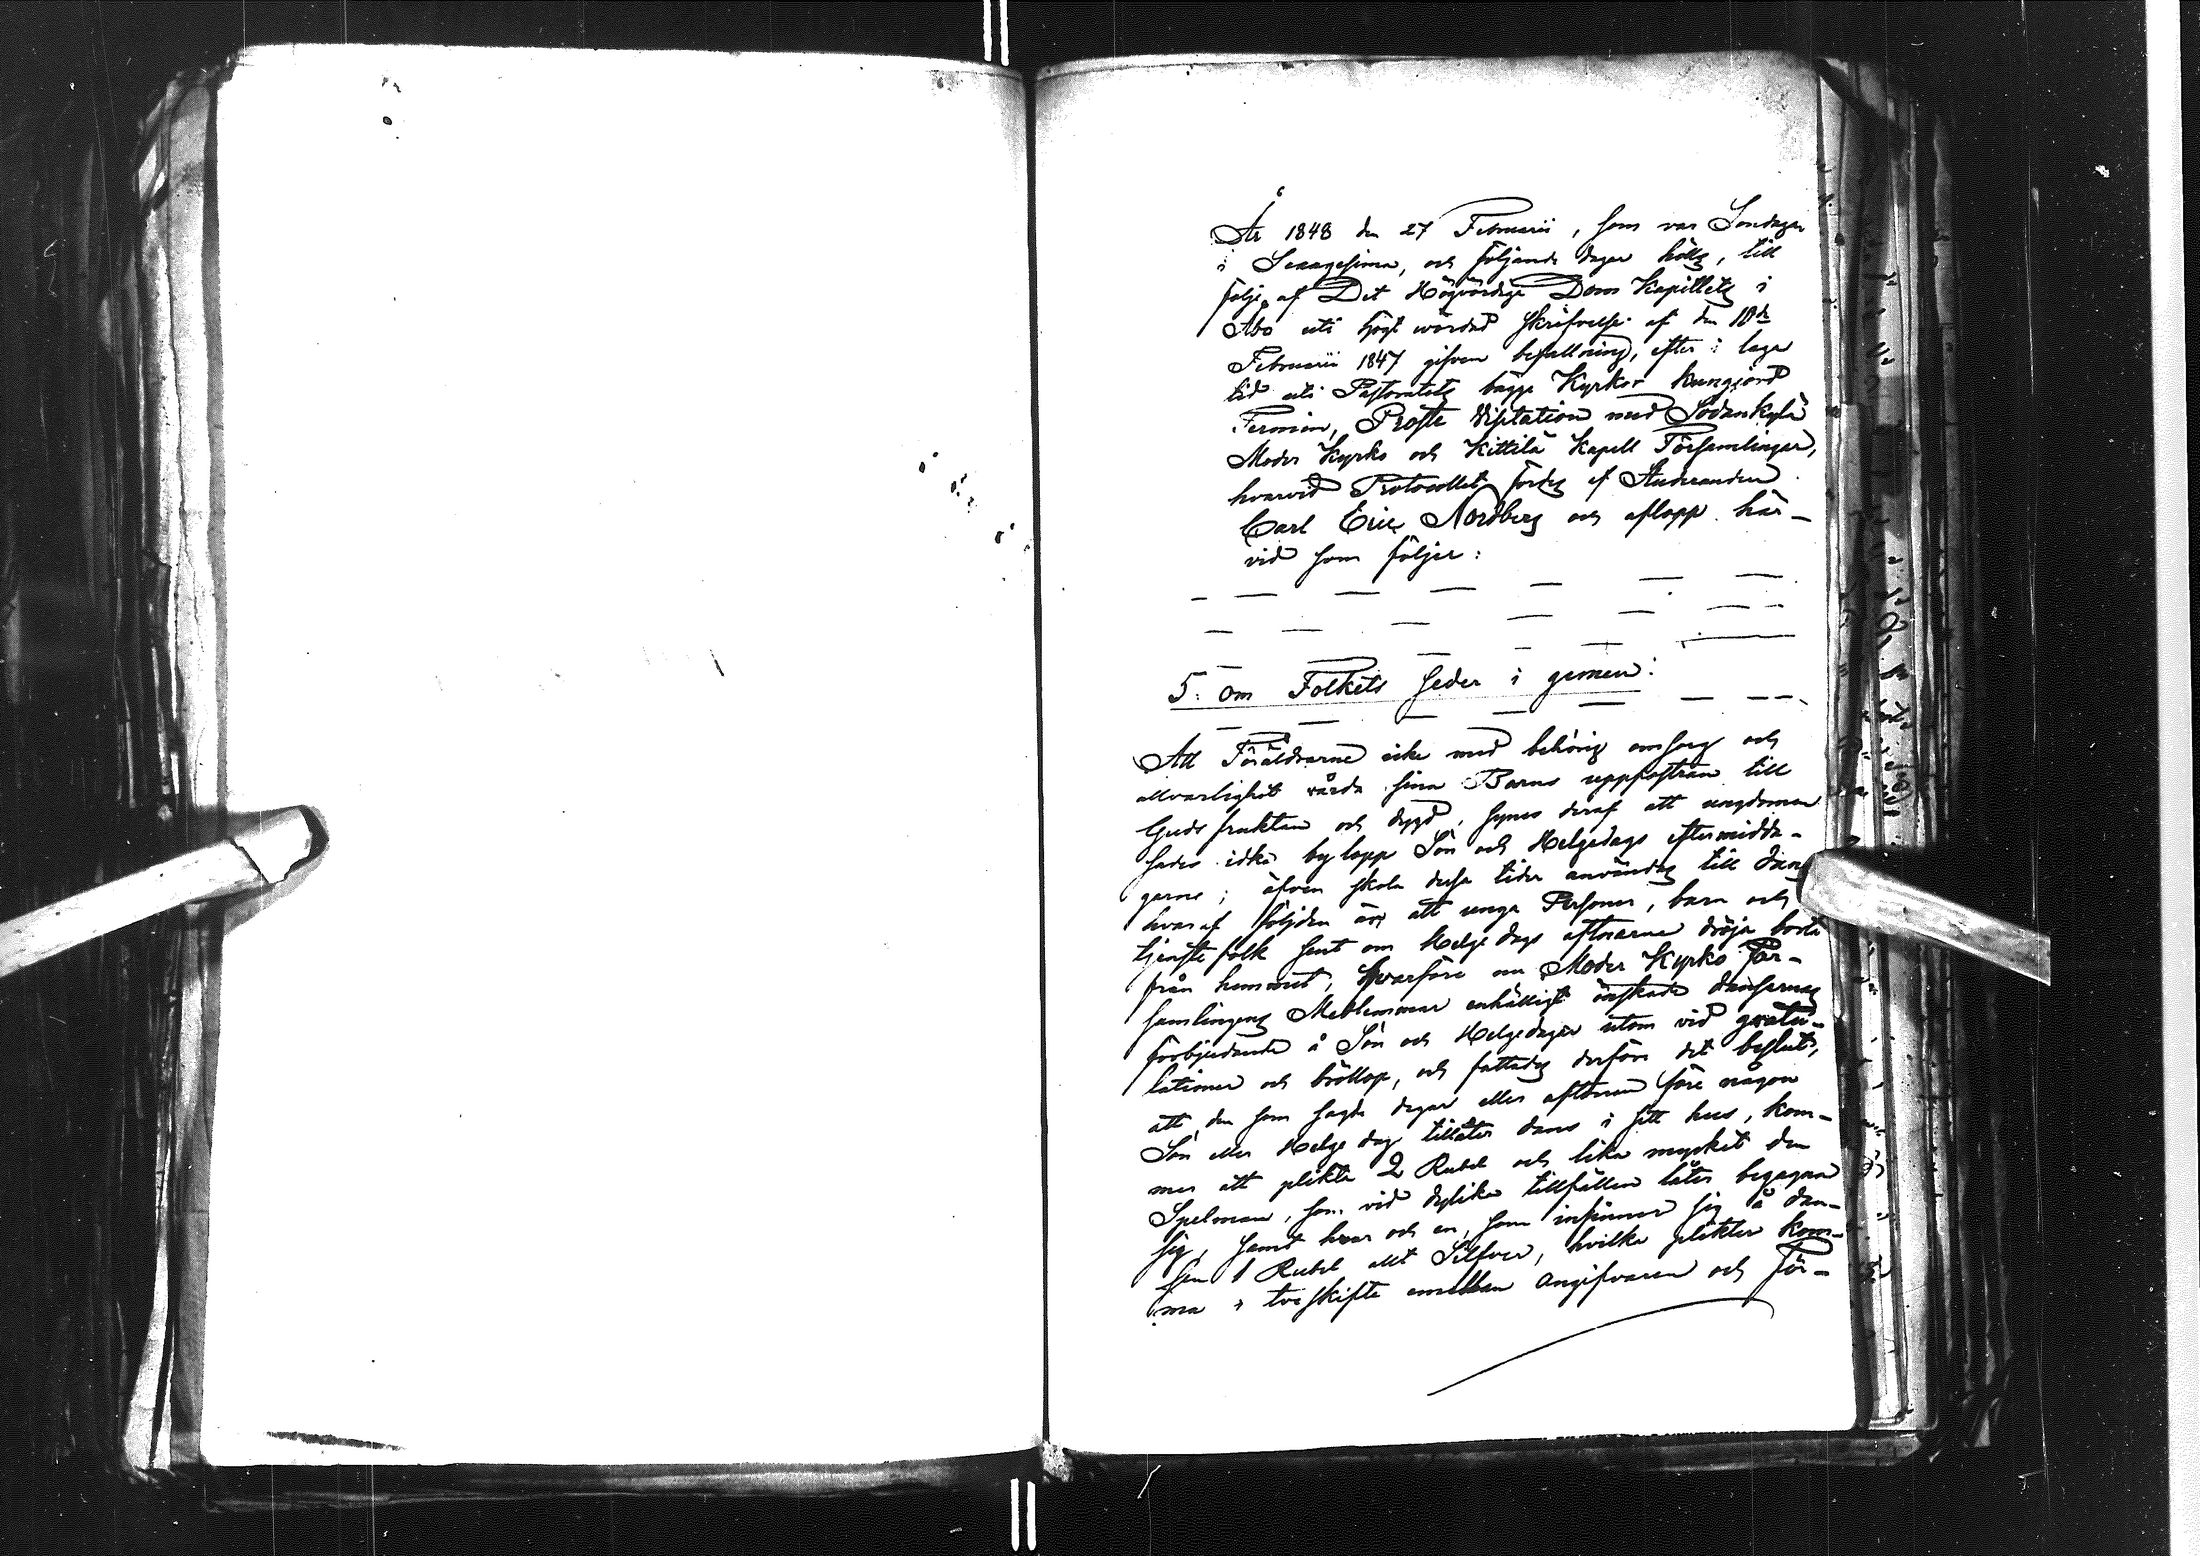 År 1848 den 27 Februarii, som var Söndagen
i Sexagesima, och följande dagar hölls, till
följe af Det Högvördige Dom Kapitlets i
Åbo uti högt wördad skrifvelse af den 10de
Februarii 1847 gifven befallning, efter i laga
tid uti Pastoratets bägge Kyrkor kungjord
Termin, Prosts Visitation med Sodankylä
Moder Kyrko och Kittilä Kapell Församlingar,
hvarvid Protocollet fördes af Studeranden
Carl Eric Nordberg och aflopp här-
vid som följer:
5. om Folkets seder i gemen:
Att Föräldrarne icke med behörig omsorg och
allvarlighet vårda sina Barns uppfostran till
Guds fruktan och dygd, synes deraf att ungdomen
sades idka bylopp Sön och Helgedags eftermidda-
garne; äfven skola dessa tider användas till dans
hvaraf följden är att unga Personer, barn och
tjenstefolk sent om Helgedags aftnarne dröja borta
från hemmet, hvarföre om Moder Kyrko För-
samlingens Medlemmar enhälligt önskade dansarnas
förbjudande å Sön och Helgedagar utom vid gratu-
lationer och bröllop, och fattades derföre det beslut,
att den som sagde dagar eller aftonen före någon
Sön eller Helge dag tillåter dans i sitt hus, kom-
mer att plikta 2 Rubel och lika mycket den
Spelman, som vid dylika tillfällen låter begagna
sig, samt hvar och en, som infinner sig å dan-
sen 1 Rubel allt Silfver, hvilka plikter kom-
ma i tveskifte emellan angifvaren och För-